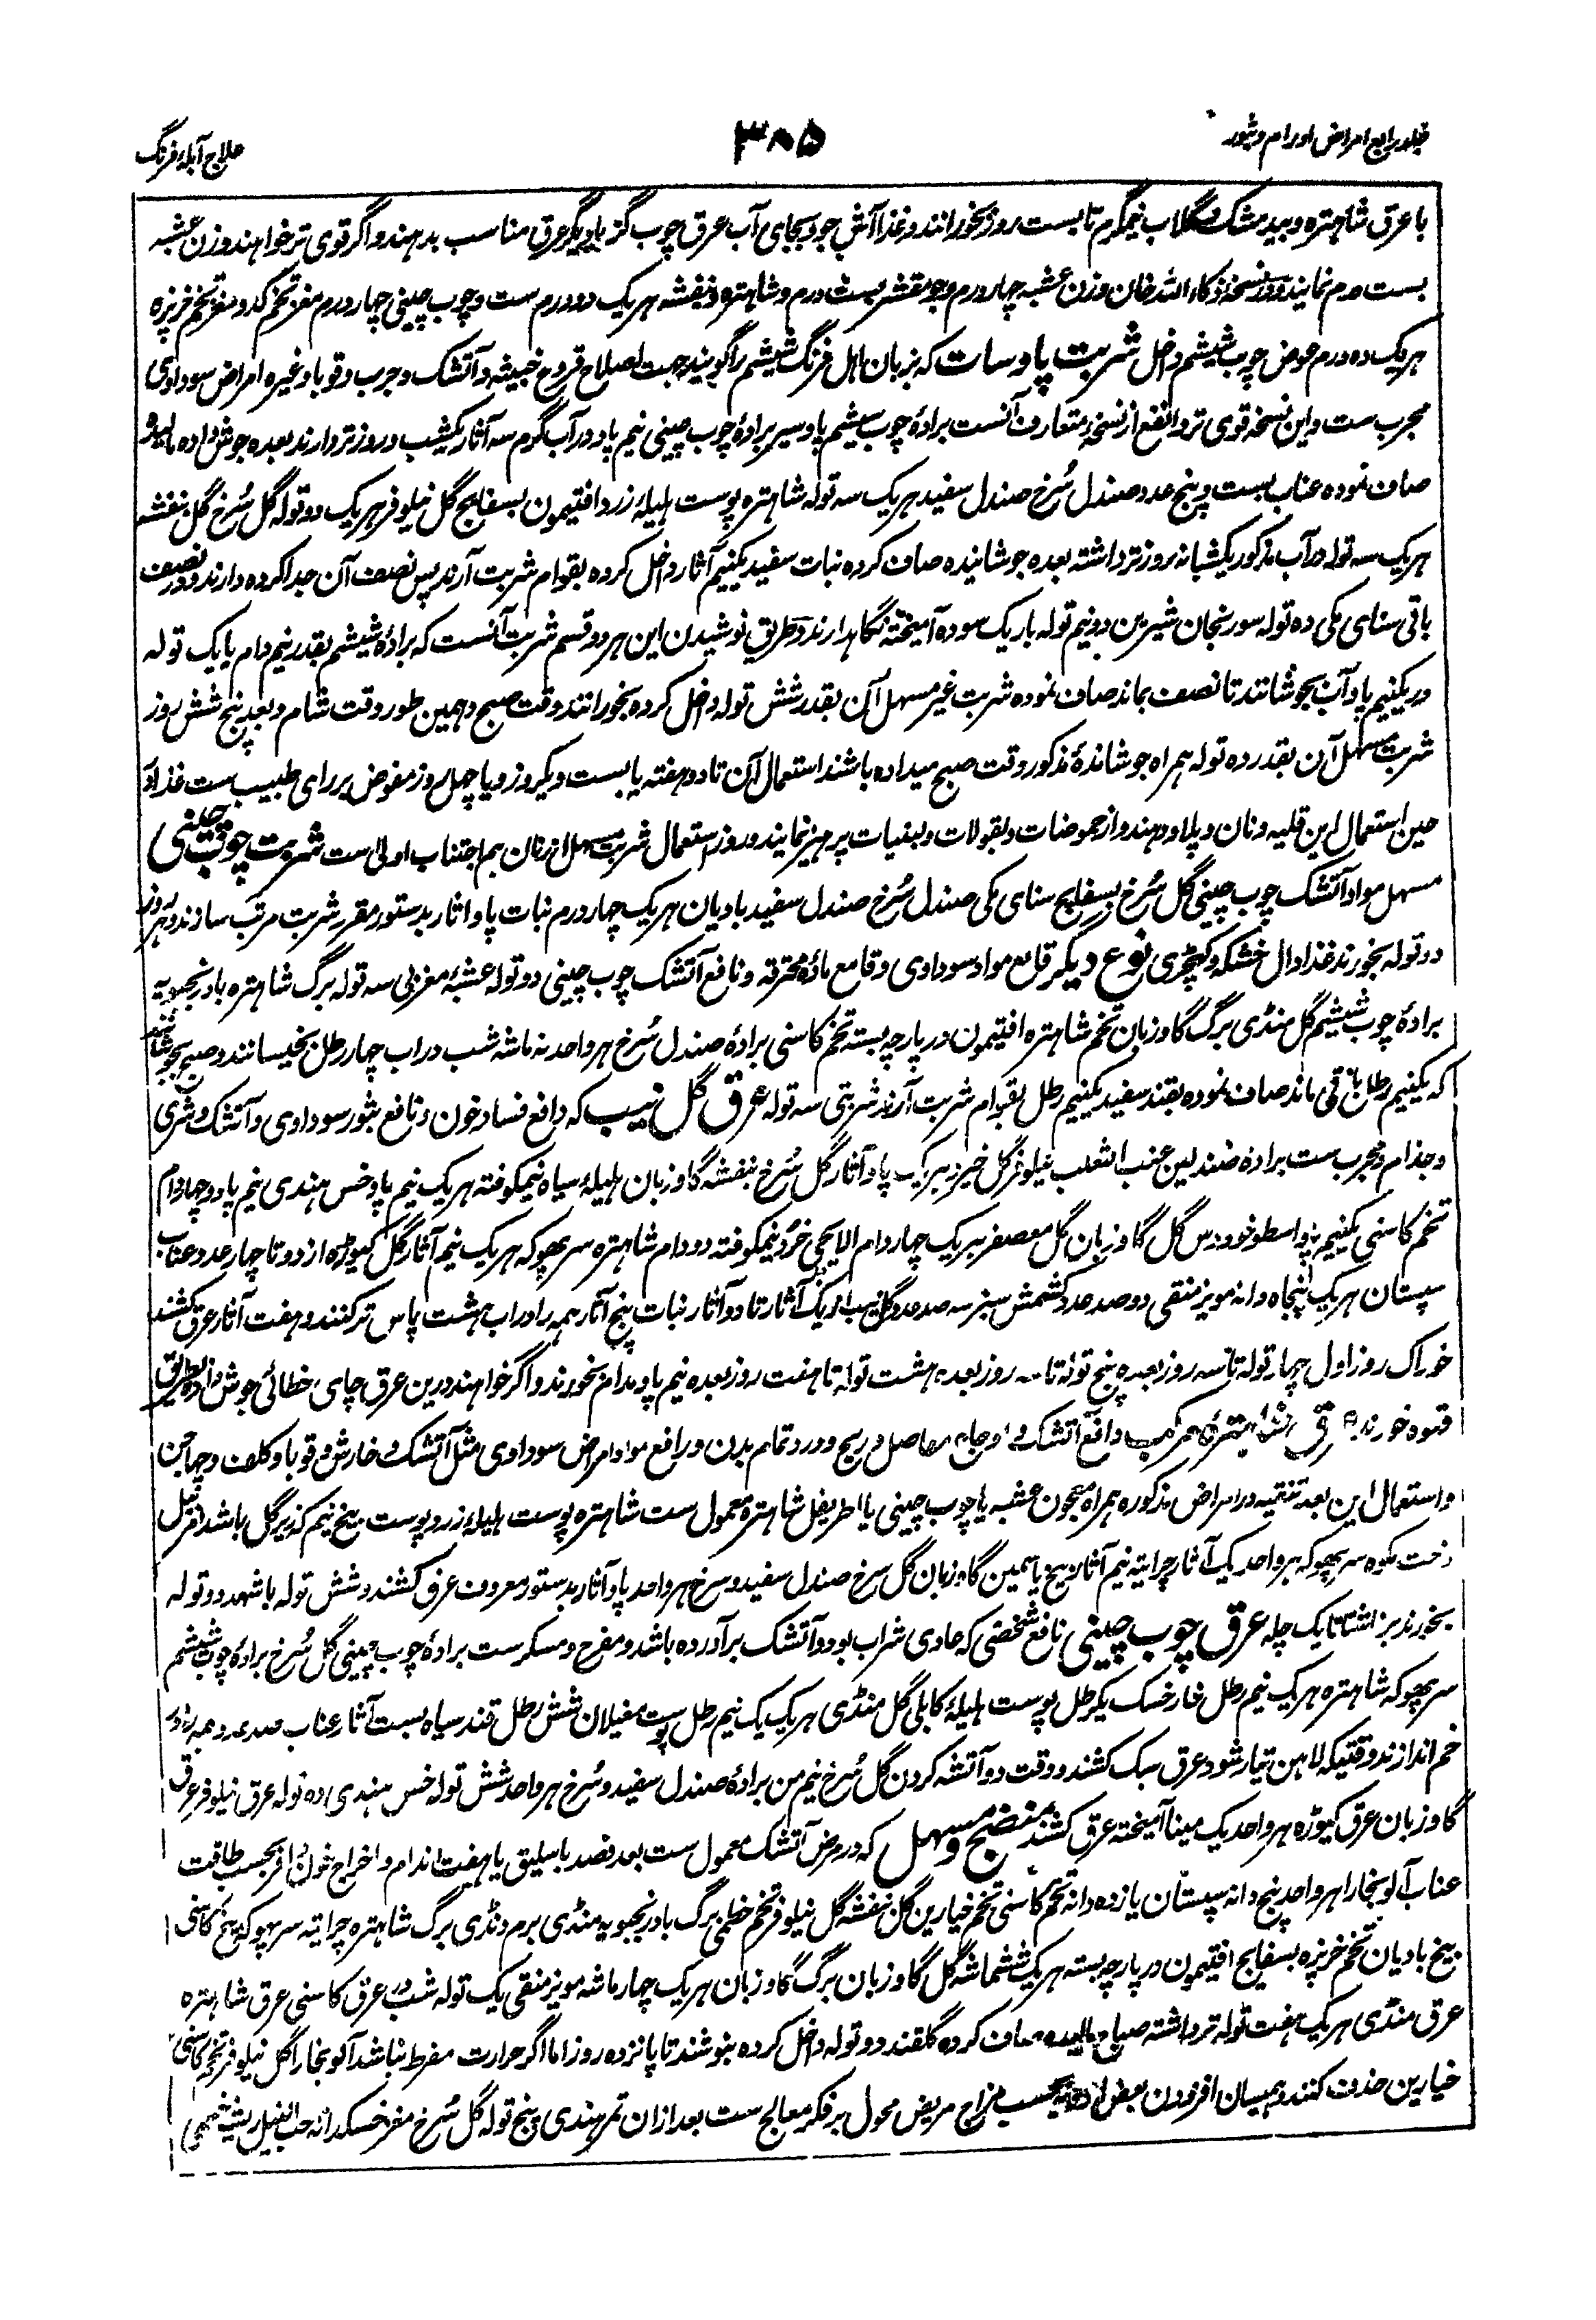 جلد رابع امراض اورام و بثور
۳۸۵
علاج آبلهٔ فرنگ
با عرق شاہترہ و بید مشک و گلاب نیمگرم تا بست روز بخورانند و غذا آش جو و بجای آب عرق چوب گز یا دیگر عرق مناسب بدہند و اگر قوی تر خواہند وزن عشبہ
بست درم نمایند و در نسخۂ ذکاء اللہ خان وزن عشبہ چہار درم و جو مقشر بست درم و شاہترہ و بنفشہ ہریک دو درم ست و چوب چینی چہار درم مغز تخم کدو مغز تخم خرپزہ
ہریک دہ درم عوض چوب شیشم داخل شربت پاوسات کہ بزبان اہل فرنگ شیشم را گویند جہت اصلاح قروح خبیثہ و آتشک و جرب و قوبا و غیرہ امراض سوداوی
مجرب ست و این نسخہ قوی تر و انفع از نسخۂ متعارف آنست برادۂ چوب شیشم پاو سیر برادۂ چوب چینی نیم پاو در آب گرم سہ آثار یکشب و روز تر دارند بعدہ جوش دادہ مالیدہ
صاف نمودہ عناب بست و پنج عدد صندل سُرخ صندل سفید ہریک سہ تولہ شاہترہ پوست ہلیلۂ زرد افتیمون بسفایج گل نیلوفر ہریک دو تولہ گل سُرخ گل بنفشہ
ہریک سہ تولہ در آب مذکور یکشبانہ روز تر داشتہ بعدہ جوشانیدہ صاف کردہ نبات سفید یکنیم آثار داخل کردہ بقوام شربت آرند پس نصف آن جدا کردہ دارند و در نصف
باقی سنای مکی دہ تولہ سورنجان شیرین دو نیم تولہ باریک سودہ آمیختہ نگاہدارند و طریق نوشیدن این ہر دو قسم شربت آنست کہ برادۂ شیشم بقدر نیم دام یا یک تولہ
در یکنیم پاو آب بجوشانند تا نصف بماند صاف نمودہ شربت غیر مسہل آن بقدر شش تولہ داخل کردہ بخورانند وقت صبح و ہمین طور وقت شام و بعد پنج شش روز
شربت مسہل آن بقدر دہ تولہ ہمراہ جوشاندۂ مذکور وقت صبح میدادہ باشند استعمال آن تا دو ہفتہ یا بست و یکروز و یا چہل روز مفوض بر رای طبیب ست غذا در
حین استعمال این قلیہ و نان و پلاو دہند و از حموضات و بقولات و لبنیات پرہیز نمایند و روز استعمال شربت مسہل از نان ہم اجتناب اولی است شربت چوب چینی
مسہل مواد آتشک چوب چینی گل سُرخ بسفایج سنای مکی صندل سُرخ صندل سفید بادیان ہریک چہار درم نبات پاو اثار بدستور مقرر شربت مرتب سازند و ہر روز
دو تولہ بخورند غذا دال خشکہ و کھچڑی نوع دیگر قامع مواد سوداوی و قامع مادۂ محترقہ و نافع آتشک چوب چینی دو تولہ عشبۂ مغربی سہ تولہ برگ شاہترہ بادرنجبویہ
برادۂ چوب شیشم گل منڈی برگ گاوزبان تخم شاہترہ افتیمون در پارچہ بستہ تخم کاسنی برادۂ صندل سُرخ ہر واحد نہ ماشہ شب در آب چہار رطل بخیسانند و صبح بجوشانند
کہ یکنیم رطل باقی ماند صاف نمودہ بقند سفید یکنیم رطل بقوام شربت آرند شربتی سہ تولہ عرق گل نیب کہ دافع فساد خون و نافع بثور سوداوی و آتشک و شری
و جذام و مجرب ست برادہ صندلین عنب الثعلب نیلوفر گل خیرو ہریک پاو آثار گل سُرخ بنفشہ گاوزبان ہلیلۂ سیاہ نیمکوفتہ ہریک نیم پاو خس ہندی نیم پاو و چہار دام
تخم کاسنی یکنیم پاو اسطوخودوس گل گاوزبان گل معصفر ہریک چہار دام الایچی خرد نیمکوفتہ دو دام شاہترہ سرپھوکہ ہریک نیم آثار گل کیوڑہ از دو تا چہار عدد عناب
سپستان ہریک پنجاہ دانہ مویز منقی دو صد عدد کشمش سبز سہ صد عدد گل نیب از یک آثار تا دو آثار نبات پنج آثار ہمہ را در آب ہشت پاس تر کنند و ہفت آثار عرق کشند
خوراک روز اول چہار تولہ تا سہ روز بعدہ پنج تولہ تا سہ روز بعدہ ہشت تولہ تا ہفت روز بعدہ نیم پاو مدام بخورند و اگر خواہند درین عرق چای خطائی جوش دادہ بطریق
قہوہ خورند عرق شاہترہ مرکب دافع آتشک و اوجاع مفاصل و ریح و درد تمام بدن و رافع مواد امراض سوداوی مثل آتشک و خارش و قوبا و کلف و چہاجن
و استعمال این بعد تنقیہ در امراض مذکورہ ہمراہ معجون عشبہ یا چوب چینی یا اطریفل شاہترہ معمول ست شاہترہ پوست ہلیلۂ زرد پوست بیخ نیم کہ زیر گل باشد
درخت مکوہ سرپھوکہ ہر واحد یک آثار چرایتہ نیم آثار بیخ یاسمین گاوزبان گل سرخ صندل سفید و سرخ ہر واحد پاو آثار بدستور معروف عرق کشند و شش تولہ با شہد دو تولہ
بخورند بر ناشتا تا یک چلہ عرق چوب چینی نافع شخصی کہ عادی شراب بود و آتشک برآوردہ باشد و مفرح و مسکر ست برادۂ چوب چینی گل سُرخ برادۂ چوب شیشم
سرپھوکہ شاہترہ ہریک نیم رطل خار خسک یکرطل پوست ہلیلۂ کابلی گل منڈی ہریک یک نیم رطل پوست مغیلان شش رطل قند سیاہ بست آثار عناب صد عدد ہمہ را در
خم اندازند وقتیکہ لاہن تیار شود عرق سبک کشند و وقت دو آتشہ کردن گل سُرخ نیم من برادۂ صندل سفید و سُرخ ہر واحد شش تولہ خس ہندی دہ تولہ عرق نیلوفر عرق
گاوزبان عرق کیوڑہ ہر واحد یک مینا آمیختہ عرق کشند منضج و مسہل کہ در مرض آتشک معمول ست بعد فصد باسلیق یا ہفت اندام و اخراج خون وافر بحسب طاقت
عناب آلو بخارا ہر واحد پنج دانہ سپستان یازدہ دانہ تخم کاسنی تخم خیارین گل بنفشہ گل نیلوفر تخم خطمی برگ بادرنجبویہ منڈی برم ڈنڈی برگ شاہترہ چرایتہ سرپھوکہ بیخ کاسنی
بیخ بادیان تخم خرپزہ بسفایج افتیمون در پارچہ بستہ ہریک ششماشہ گل گاوزبان برگ گاوزبان ہریک چہار ماشہ مویز منقی یک تولہ شب در عرق کاسنی عرق شاہترہ
عرق منڈی ہریک ہفت تولہ تر داشتہ صباح مالیدہ صاف کردہ گلقند دو تولہ داخل کردہ بنوشند تا پانزدہ روز اما اگر حرارت مفرط نباشد آلو بخارا گل نیلوفر تخم کاسنی
خیارین حذف کنند و ہمیسان افزودن بعض ادویہ بحسب مزاج مریض محول بر فکر معالج ست بعد ازان تمر ہندی پنج تولہ گل سُرخ مغز خسکدانہ حب النیل